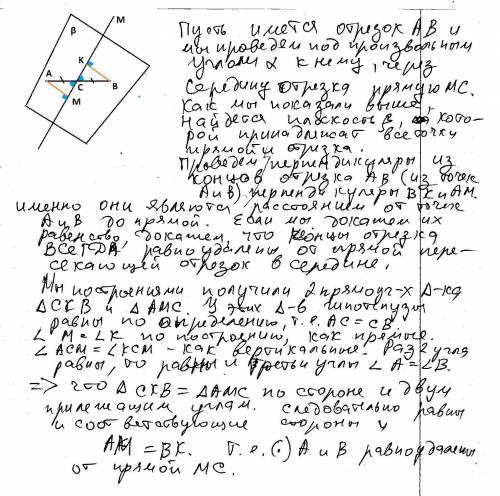 β
M
K
A
C
B
M
Пусть имется отрезок АВ и
мы проведем под произвольным
углом α к нему, через
середину отрезка прямую МС.
Как мы показали выше,
найдется плоскость β, кото-
рой принадлежат все точки
прямой и отрезка.
Проведем перпендикуляры из
концов отрезка АВ (из точек
А и В). перпендикуляры ВК и АМ.
именно они являются расстоянием от точек
А и В до прямой. Если мы докажем их
равенство, докажем, что концы отрезка
ВСЕГДА равноудалены от прямой пере-
секающей отрезок в середине.
Мы построениями получили 2 прямоуг-х Δ-ка
ΔСКВ и ΔАМС. У этих Δ-в гипотенузы
равны по определению, т.е. АС=СВ
∠М=∠К по построению, как прямые.
∠АСМ=∠КСМ - как вертикальные. Раз 2 угла
равны, то равны и третьи углы ∠А=∠В.
=> что ΔСКВ=ΔАМС по стороне и двум
прилежащим углам. следовательно равны
и соответствующие стороны
АМ=ВК. Т.е. (.) А и В равноудалены
от прямой МС.